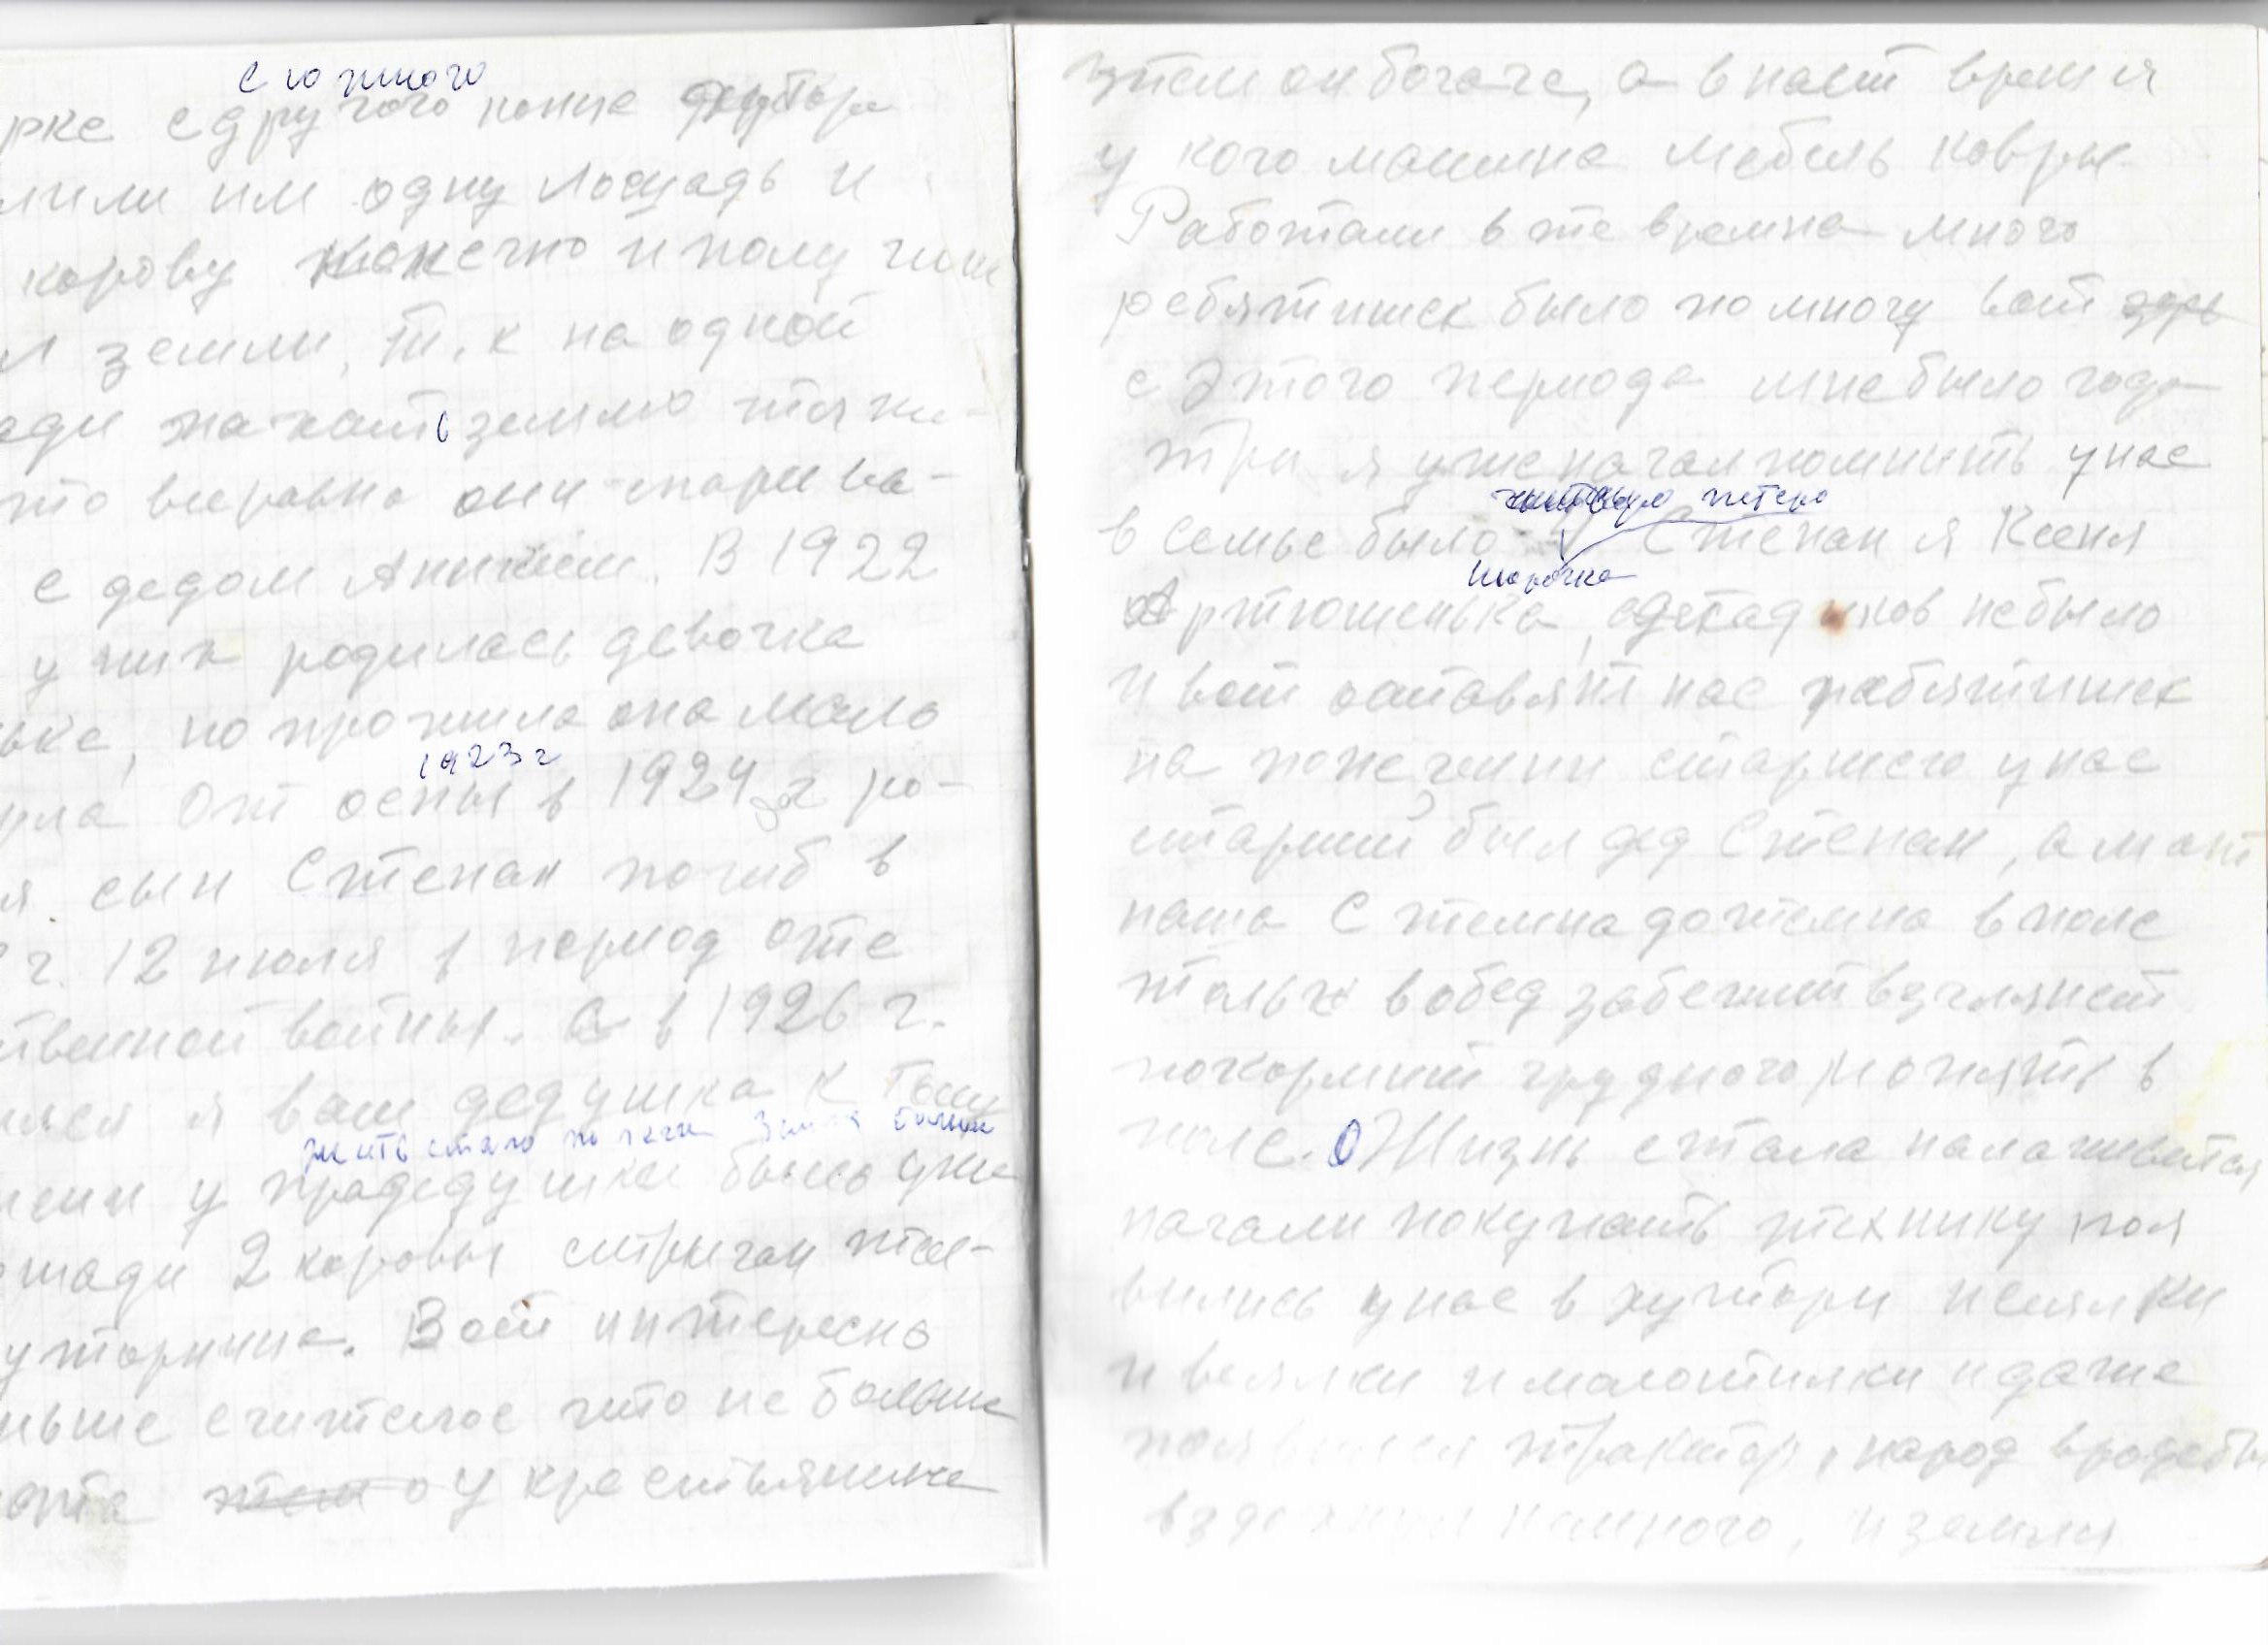 с южного
рке с другого конца хутора
лили им одну лошадь и
корову конечно и получили
л земли, т.к на одной
ади пахать землю тяже-
то всеравно они спарива-
с дедом Аникием. В 1922
у них родилась девочка
ька, но прожила она мало
1923 г
рла от оспы в 1924 г ро-
я сын Степан погиб в
г. 12 июля в период оте
твенной войны. а в 1926 г.
лся я ваш дедушка к тому
жить стало по легче земля
мени у прадедушки было уже
шади 2 коровы стригун тел-
уторница. Вот интересно
ньше считалось что не больше
ота у крестьянина
этем он богаче, а в наст время
у кого машина мебель ковры
Работали в те времена много
ребятишек было по многу вот
с этого периода мне было года
три я уже начал помнить у нас
пятеро
в семье было Степан я Ксеня
Шурочка
Артюшенька, садиков не было
и вот оставят нас ребятишек
на попечении старшего у нас
старший был дед Степан, а мать
наша с темна до темна в поле
только в обед забежит взглянет
покормит грудного и опять в
поле. Жизнь стала налаживатся
начали покупать технику поя
вились у нас в хутори и сеялки
и веялки и молотилки и даже
появился трактор, народ вродебы
вздохнул немного, и земля